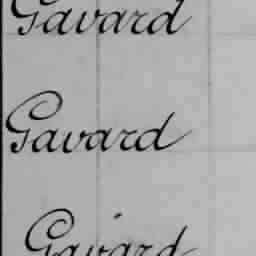 Gavard
Gavard
Gavard